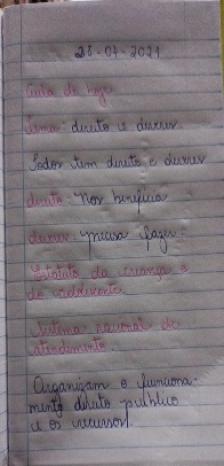 28-04-2021
Aula de hoje
Tema: direito e deveres
Todos tem direito e deveres
direito: Nos beneficia
deveres: precisa fazer.
Estatuto da criança e
do adolescente.
Sistema nacional de
atendimento.
Organizam e funciona-
mento direito público
e os recursos